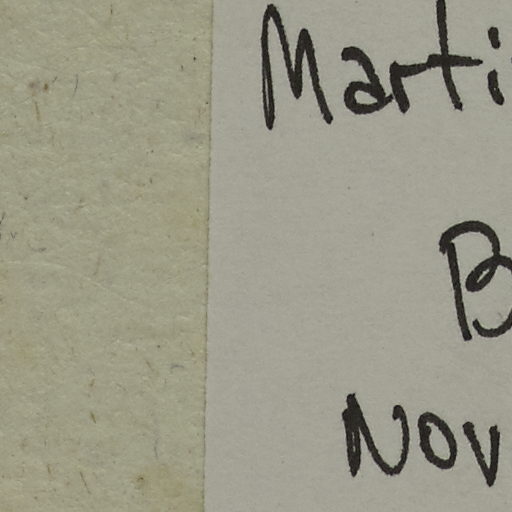 Marti
B
Nov